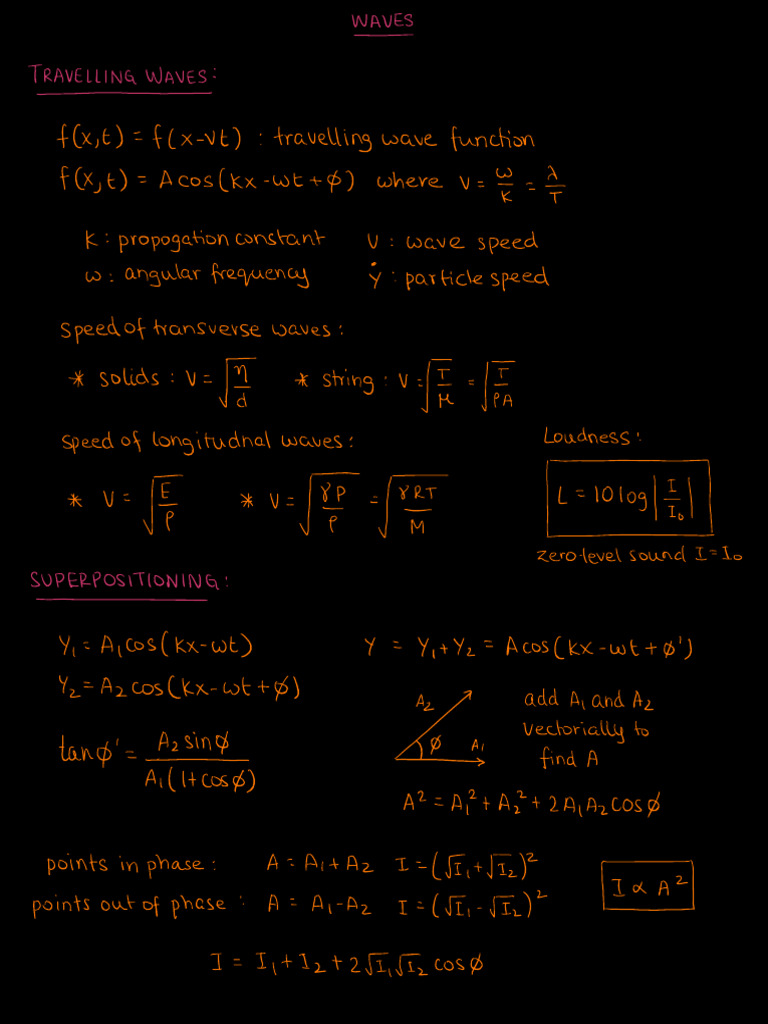 WAVES
TRAVELLING WAVES:
f(x,t) = f(x-vt) : travelling wave function
f(x,t) = Acos(kx-ωt+φ) where v = ω/k = λ/T
k : propogation constant v : wave speed
ω : angular frequency ẏ : particle speed
speed of transverse waves :
* solids : v = √(η/d) * string : v = √(T/μ) = √(T/ρA)
speed of longitudnal waves :
Loudness :
* v = √(E/ρ) * v = √(γP/ρ) = √(γRT/M)
L = 10 log|I/I₀|
zero-level sound I = I₀
SUPERPOSITIONING :
y₁ = A₁cos(kx-ωt) y = y₁+y₂ = Acos(kx-ωt+φ')
y₂ = A₂cos(kx-ωt+φ)
A₂ φ A₁
add A₁ and A₂
vectorially to
find A
tanφ' = A₂sinφ / A₁(1+cosφ)
A² = A₁² + A₂² + 2A₁A₂cosφ
points in phase : A = A₁+A₂ I = (√I₁+√I₂)²
points out of phase : A = A₁-A₂ I = (√I₁-√I₂)²
I ∝ A²
I = I₁+I₂+2√I₁√I₂ cosφ